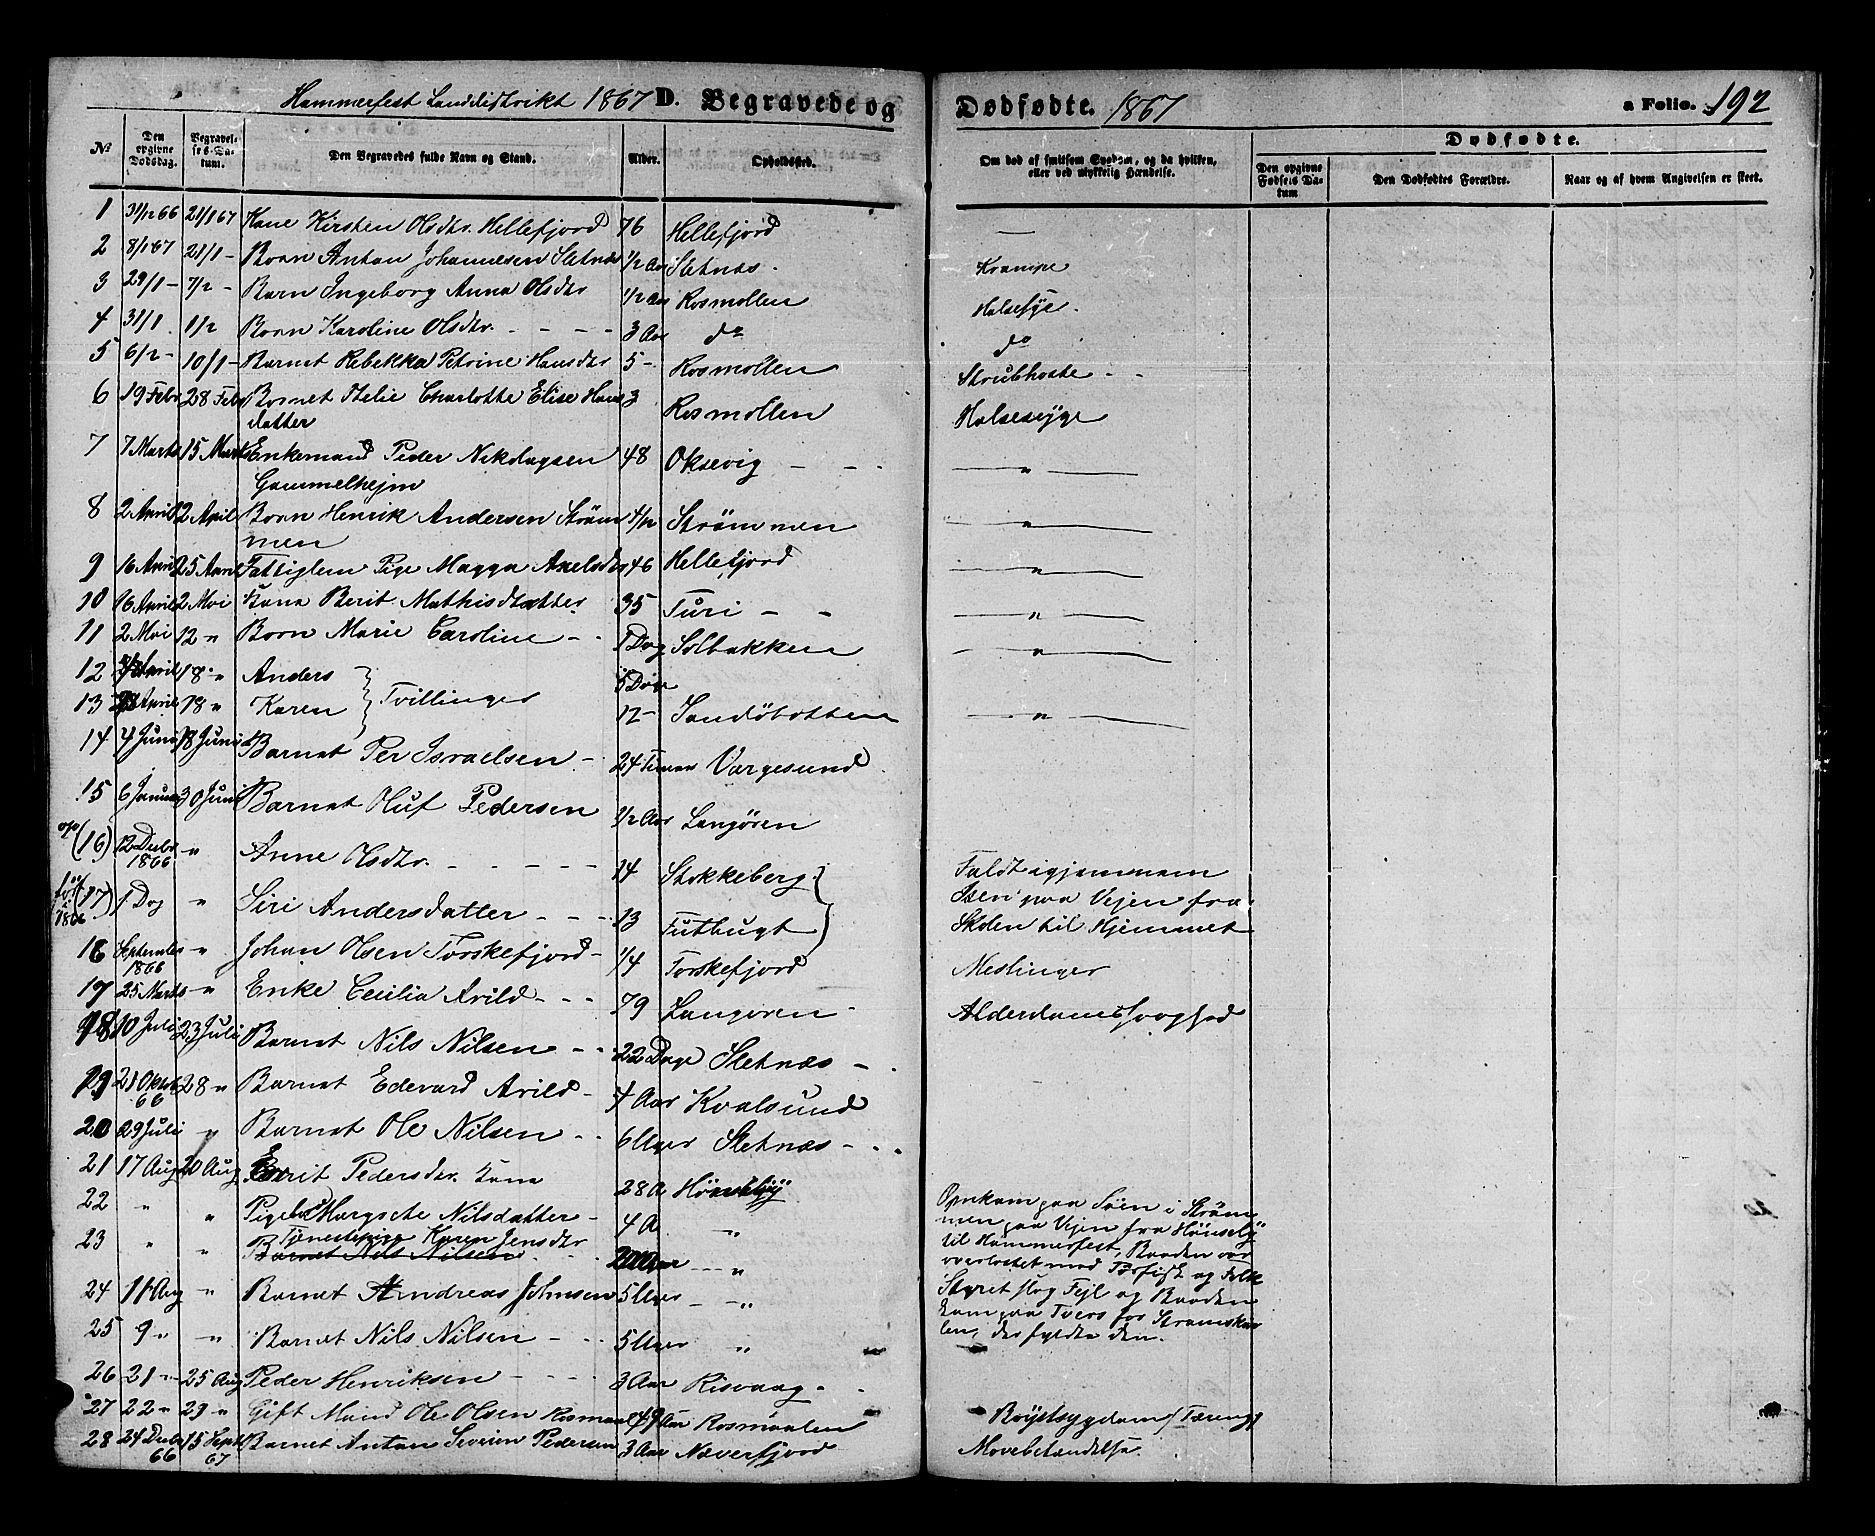 Hammerfest Landdistrikt 1867 D. Begravede og Dødfødte. 1867 a Folio. 192
№ Den opgivne Dødsdag. Begravelses-Datum. Den Begravedes fulde Navn og Stand. Alder. Opholdssted. Om død af smitsom Sygdom, og da hvilken, eller ved ulykkelig Hændelse. Dødfødte. Den opgivne Fødsels Datum Den Dødfødtes Forældre. Naar og af hvem Angivelsen er skeet.
1 31/12 66 21/1 67 Kone Kirsten Olsdtr. Hellefjord 76 Hellefjord —
2 8/1 67 21/1 - Barn Anton Johannesen Sletnes 1/2 Aar Sletnæs - Krampe
3 29/1 - 7/2 - Barn Ingeborg Anna Olsdtr 1/2 Aar Rosmollen Halsesyge.
4 31/1 1/2 Barn Karoline Olsdtr. - - - - 3 Aar do do
5 6/2 - 10/1 - Barnet Rebekka Petrine Hansdtr 5 - Rosmollen Strubhoste - -
6 19 Febr 28 Febr Barnet Thelie Charlotte Elise Hans 3 Rosmollen Halsesyge
datter
7 7 Marts 15 Marts Enkemand Peder Nikolaysen 48 Oksevig - - - — " —
Gammelhejm
8 2 April 12 April Barn Henrik Andersen Strøm 4/12 Strømmen — " —
men
9 16 April 25 April Fattiglem Pige Magga Axelsdtr 46 Hellefjord — " —
10 16 April 2 Mai Kona Berit Mathisdatter 35 Turi - - — " —
11 2 Mai 12 " Barn Marie Caroline - - 1 Dag Solbakken — " —
12 April 18 " Anders
13 April 18 " Karen } Tvillinger 12 - Sandøbotten — " —
14 4 Juni 18 Juni Barnet Per Israelsen - 24 Timer Vargesund
15 6 Januar 30 Juni Barnet Oluf Pedersen 1/2 Aar Langøren
(16) 12 Decbr " Anne Olsdtr. - - - - - 14 Stokkeberg } Faldt igjennem
1866
(17) 1 Dag " Siri Andersdatter - - - 13 Tutbugt Isen paa Vejen fra
1866 Skolen til Hjemmet
16 September " Johan Olsen Torskefjord - 1/4 Torskefjord Meslinger
1866
17 25 Marts " Enke Cecilia Arild - - - 79 Langøren - Alderdomssvaghed
18 10 Juli 23 Juli Barnet Nils Nilsen - - 22 Dage Sletnæs -
19 28 Oktbr 28 " Barnet Edevard Arild - 4 Aar Kvalsund
66
20 29 Juli " Barnet Ole Nilsen - - 6 Uger Sletnæs - - -
21 17 Aug 20 Aug Berit Pedersdtr. Kona 28 A Hønseby
22 " " Pigebarn Margrete Nilsdatter - 4 A " Omkom paa Søen i Strøm
men paa Vejen fra Hønseby
23 " " Tjenestepige Karen Jensdtr - - 20 Aar - - " til Hammerfest, Baaden var
Barnet Nils Nilsen overlastet med Tørfisk og Folk
24 11 Aug " Barnet Andreas Johnsen 5 Uger - " Styret slog Fejl og Baaden
kom paa Tvers for Strømska
25 9 " " Barnet Nils Nilsen - - 5 Uger " len, der fyldte den.
26 21 " 25 Aug Peder Henriksen - - - - 3 Aar Risvaag - -
27 22 " 29 " Gift Mand Ole Olsen Rosmaal 49 Aar Rosmaalen Brystsygdom (Tæring)
28 24 Decbr 15 Septbr Barnet Anton Severin Pedersen 3 Aar Neverfjord Mavebetændelse.
66 67